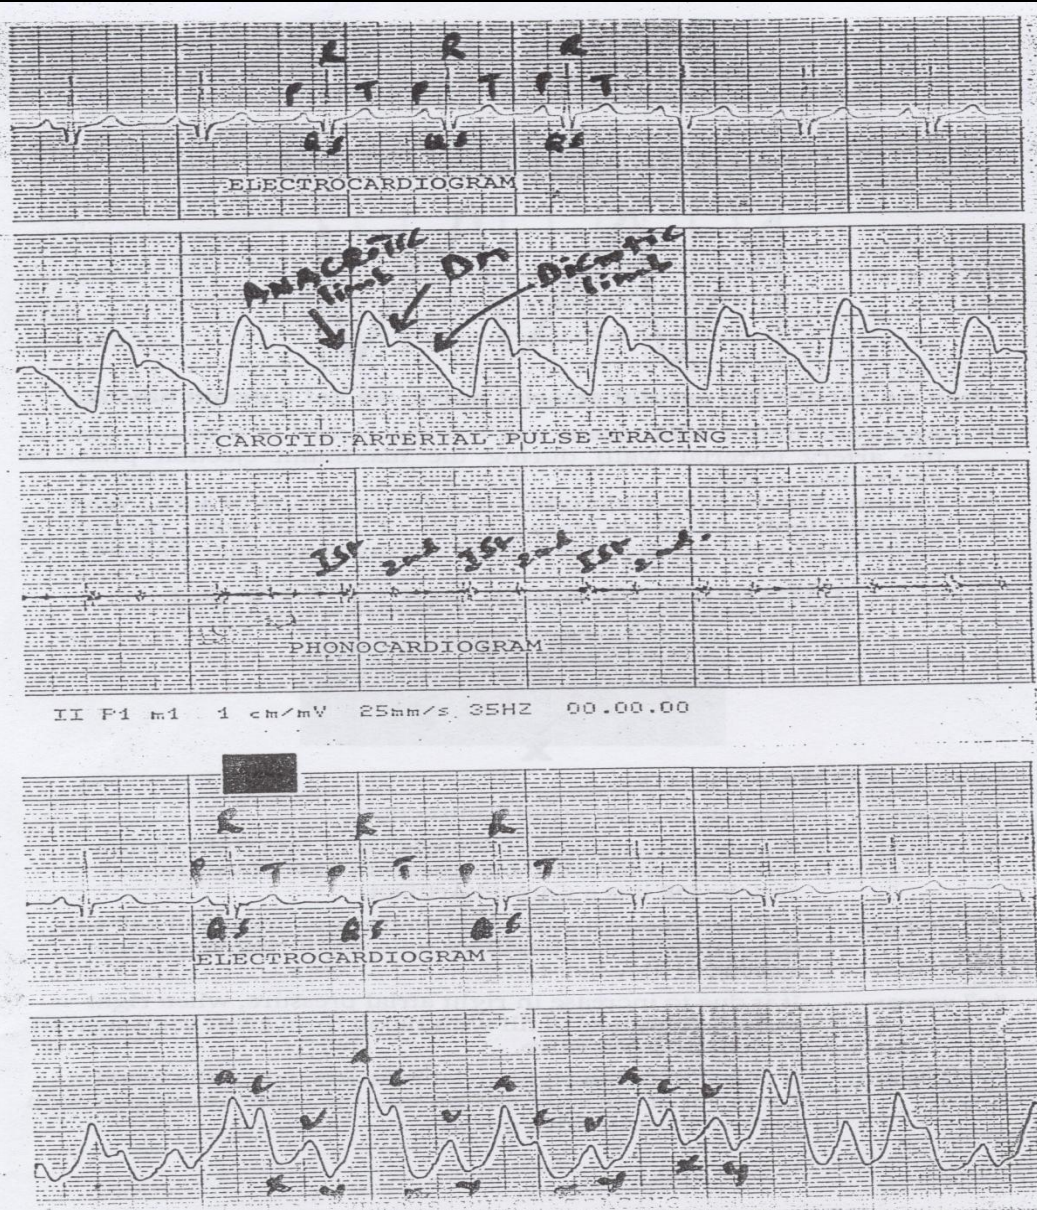 R R R
P T P T P T
QS QS QS
ELECTROCARDIOGRAM
ANACROTIC
limb
Dicrotic
limb
CAROTID ARTERIAL PULSE TRACING
Ist 2nd Ist 2nd Ist 2nd.
PHONOCARDIOGRAM
II P1 m1 1 cm/mV 25mm/s 35HZ 00.00.00
R R R
P T P T P T
QS QS QS
ELECTROCARDIOGRAM
A C A C A A C V
V V C V
x y y y x y